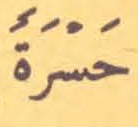 حَسْرَةٌ